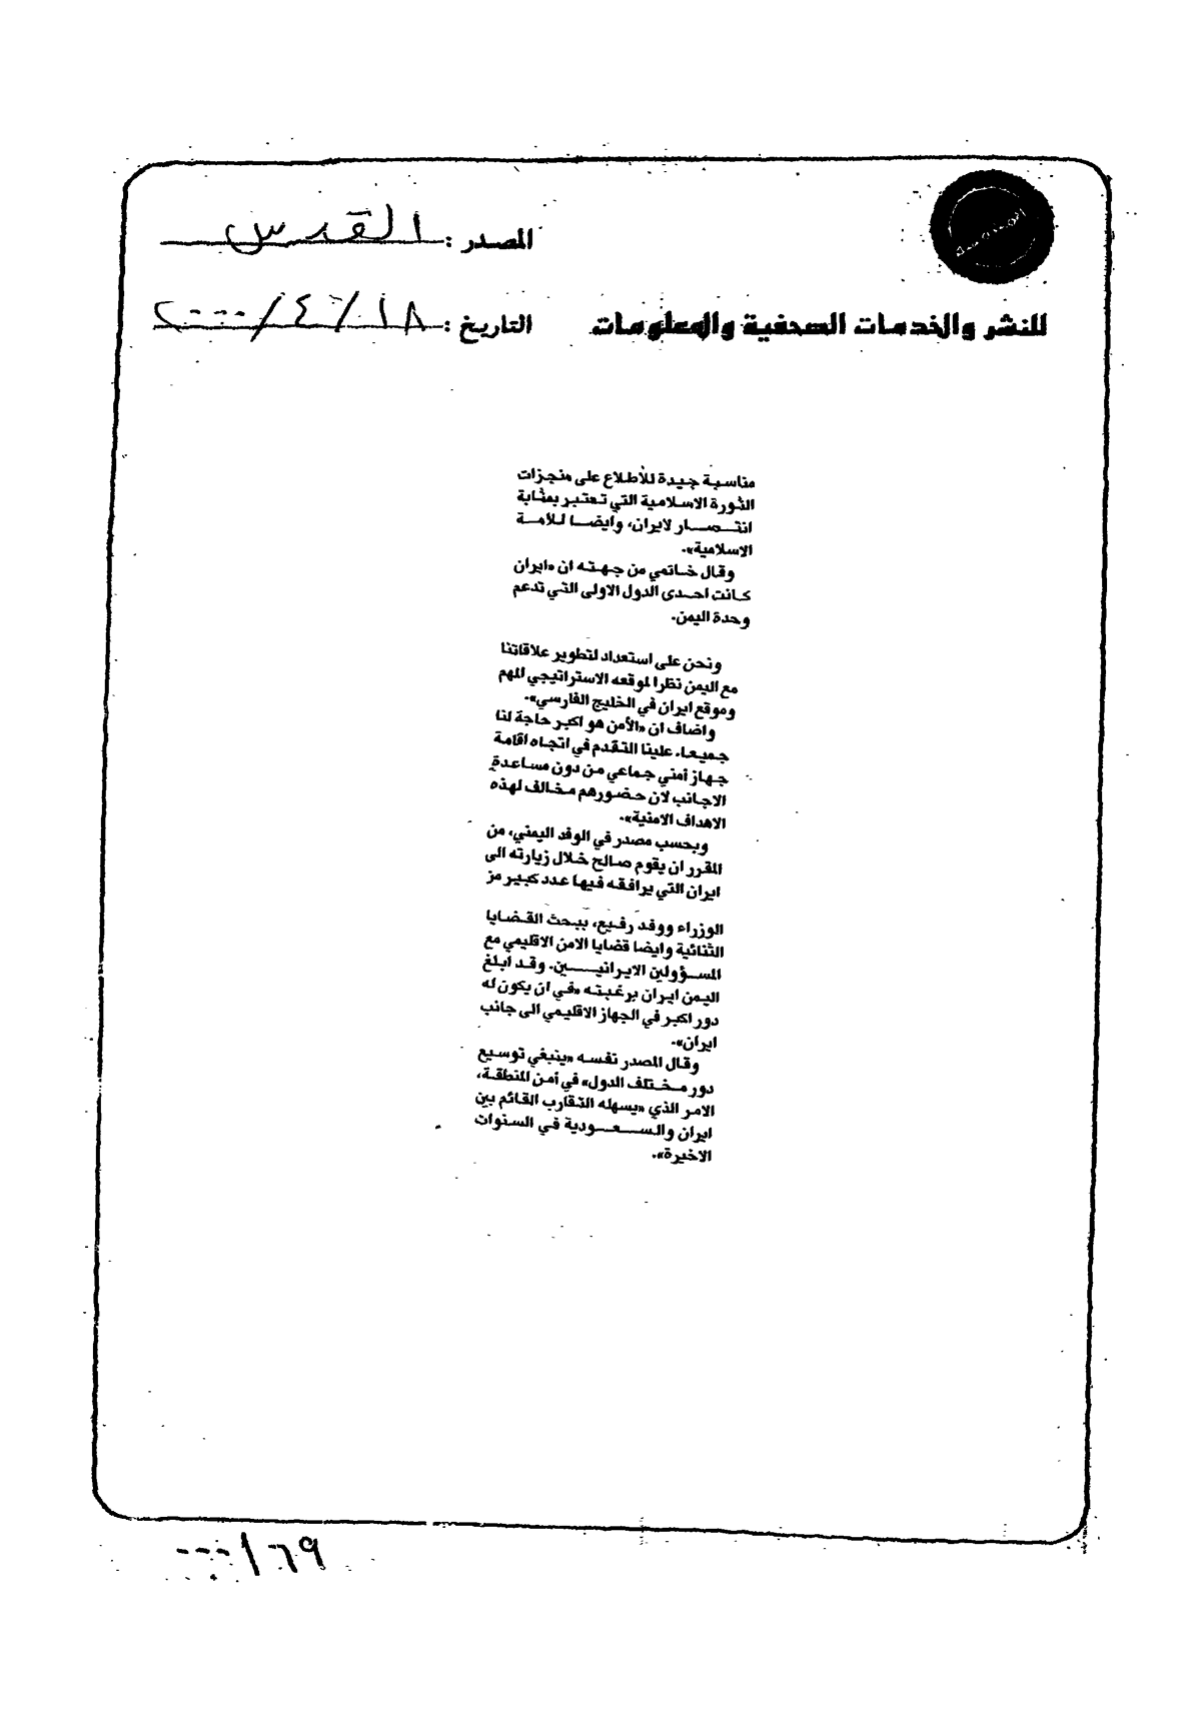 المصدر : القدس
للنشر والخدمات الصحفية والمعلومات
التاريخ : ١٨ / ٤ / ٢٠٠٠
مناسبة جيدة للأطلاع على منجزات
الثورة الاسلامية التي تعتبر بمثابة
انتصار لايران، وايضا للأمة
الاسلامية».
وقال خاتمي من جهته ان «ايران
كانت احدى الدول الاولى التي تدعم
وحدة اليمن.
ونحن على استعداد لتطوير علاقاتنا
مع اليمن نظرا لموقعه الاستراتيجي المهم
وموقع ايران في الخليج الفارسي».
واضاف ان «الأمن هو اكبر حاجة لنا
جميعا. علينا التقدم في اتجاه اقامة
جهاز أمني جماعي من دون مساعدة
الاجانب لان حضورهم مخالف لهذه
الاهداف الامنية».
وبحسب مصدر في الوفد اليمني، من
المقرر ان يقوم صالح خلال زيارته الى
ايران التي يرافقه فيها عدد كبير مز
الوزراء ووفد رفيع، ببحث القضايا
الثنائية وايضا قضايا الامن الاقليمي مع
المسؤولين الايرانيين. وقد ابلغ
اليمن ايران برغبته «في ان يكون له
دور اكبر في الجهاز الاقليمي الى جانب
ايران».
وقال المصدر نفسه «ينبغي توسيع
دور مختلف الدول» في أمن المنطقة،
الامر الذي «يسهله التقارب القائم بين
ايران والسعودية في السنوات
الاخيرة».
٠٠٠١٦٩